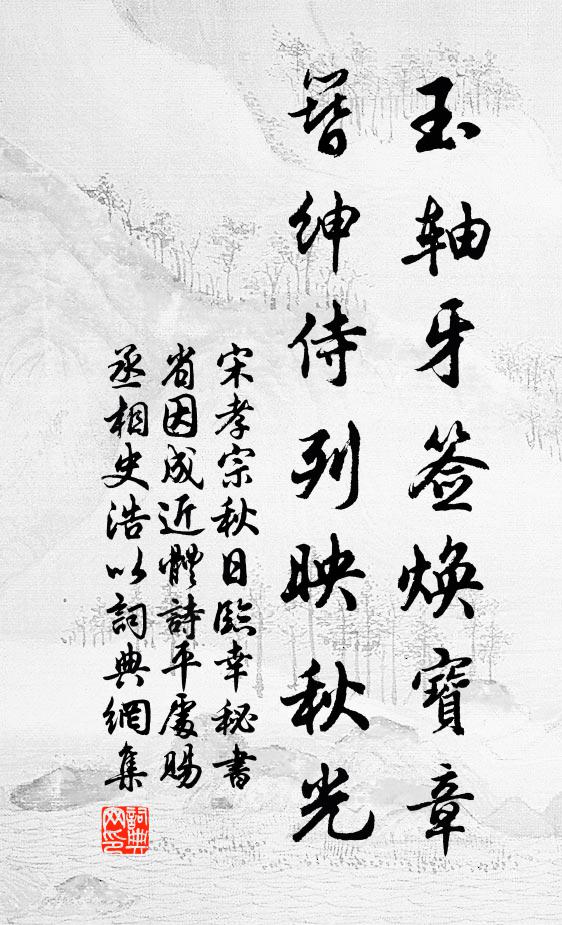 玉轴牙签焕寳章
簪绅侍列映秋光
宋孝宗秋日臨幸秘書
省因成近體詩平處賜
丞相史浩以詞典網集
詞典
网印